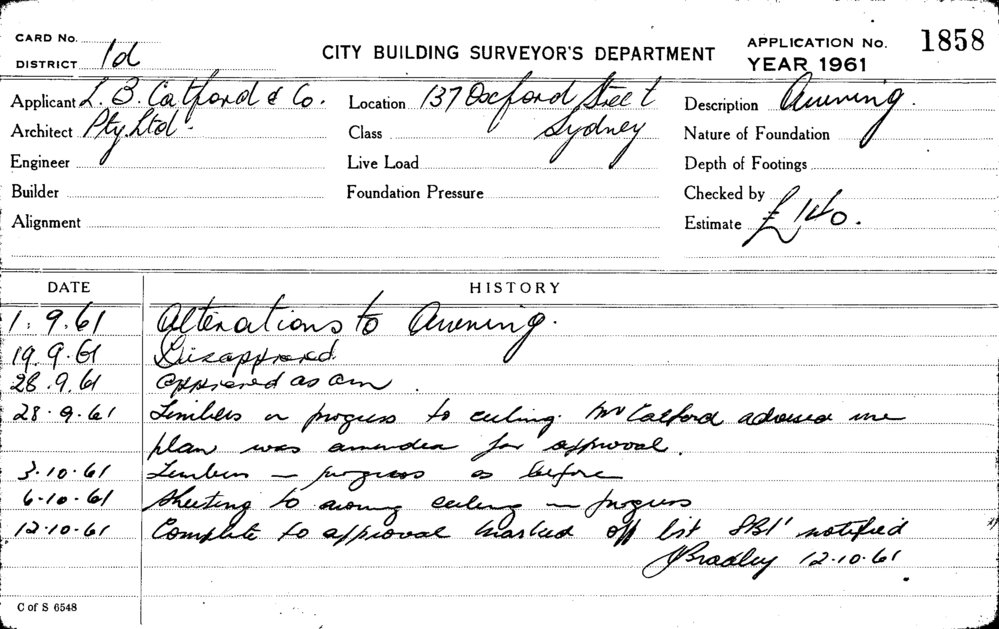 CARD No.
DISTRICT 1d
CITY BUILDING SURVEYOR'S DEPARTMENT
APPLICATION No. 1858
YEAR 1961
Applicant L. B. Catford & Co.
Location 137 Oxford Street
Description Awning.
Architect Pty Ltd.
Class Sydney
Nature of Foundation
Engineer
Live Load
Depth of Footings
Builder
Foundation Pressure
Checked by
Alignment
Estimate £140.
DATE HISTORY
1.9.61 Alterations to Awning.
19.9.61 Disapproved
28.9.61 approved as am.
28.9.61 Timbers in progress to ceiling. Mr Catford advised me
plan was amended for approval.
3.10.61 Timbers in progress as before
6.10.61 Sheeting to awning ceiling in progress
12.10.61 Complete to approval marked off list SBI notified
Bradley 12.10.61
C of S 6548